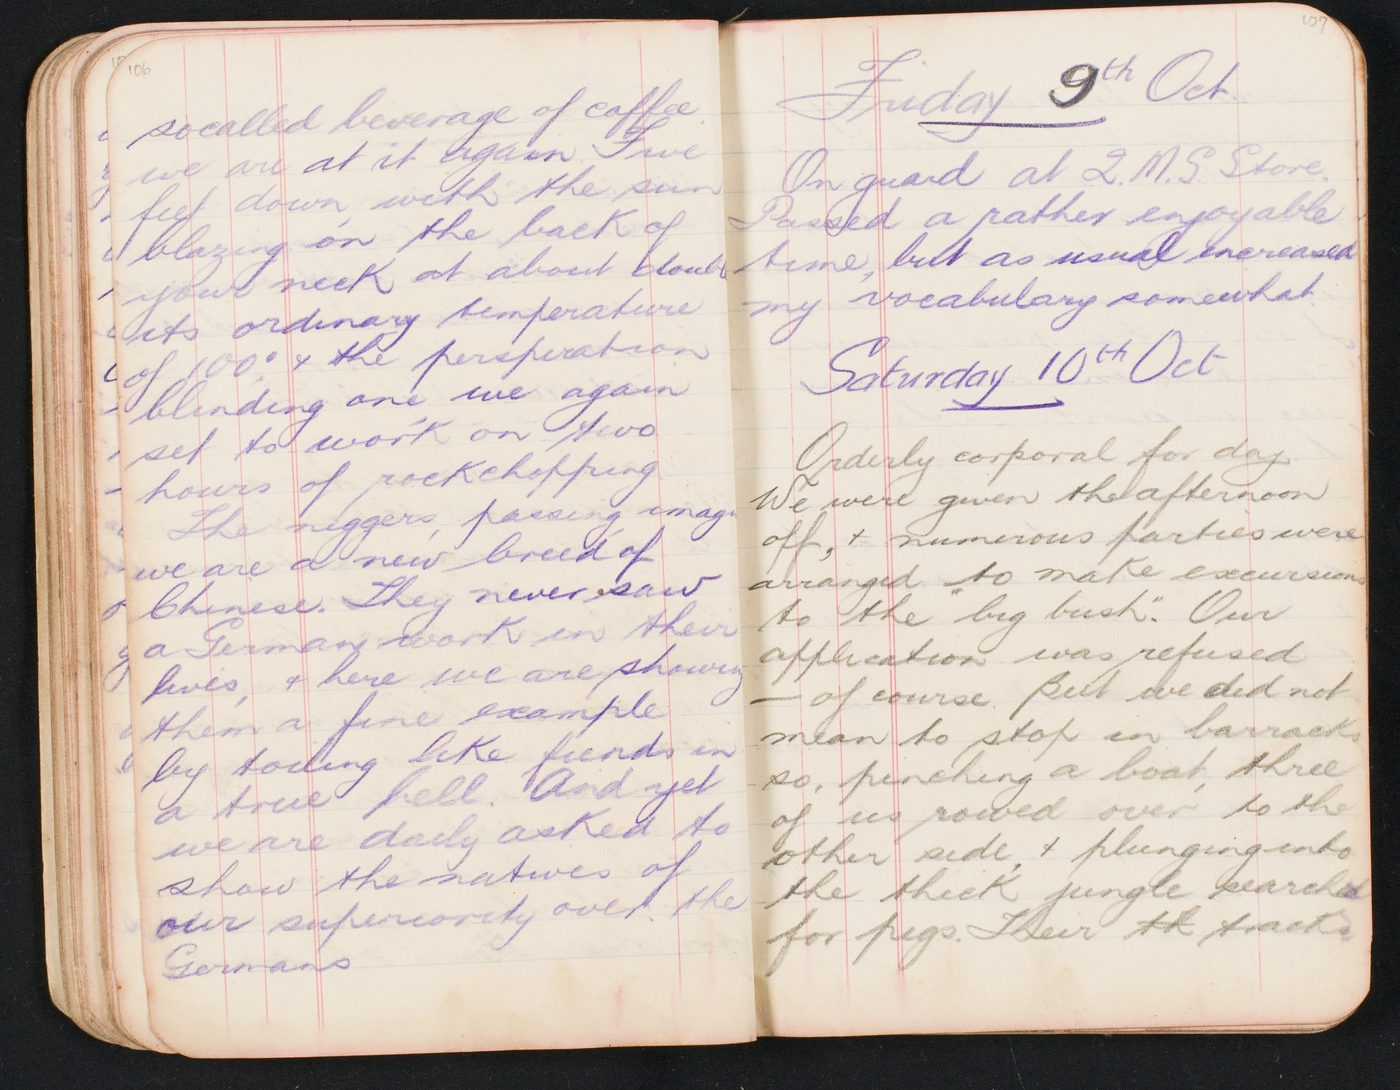 106
socalled beverage of coffee.
we are at it again. Five
feet down with the sun
blazing on the back of
your neck at about doubl
its ordinary temperature
of 100° & the persperation
blinding one we again
set to work on two
hours of rockchopping.
The niggers, passing imagi
we are a new breed of
Chinese. They never saw
a German work in their
lives, & here we are showing
them a fine example
by toiling like fiends in
a true hell. And yet
we are daily asked to
show the natives of
our superiority over the
Germans
107
Friday 9th Oct.
On guard at Q.M.S Store.
Passed a rather enjoyable
time, but as usual increased
my vocabulary somewhat
Saturday 10th Oct
Orderly corporal for day
We were given the afternoon
off, & numerous parties were
arranged to make excursions
to the "big bush". Our
application was refused
— of course. But we did not
mean to stop in barracks
so, pinching a boat, three
of us rowed over to the
other side, & plunging into
the thick jungle searched
for pigs. Their tracks